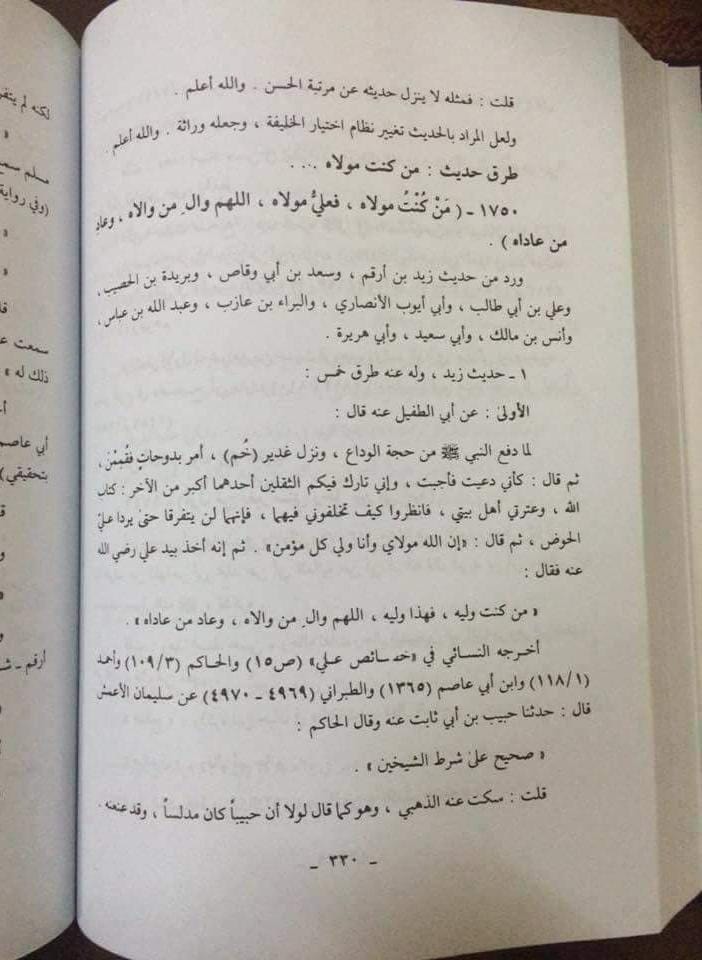 قلت : فمثله لا ينزل حديثه عن مرتبة الحسن . والله أعلم .
ولعل المراد بالحديث تغيير نظام اختيار الخليفة ، وجعله وراثة . والله أعلم .
طرق حديث : من كنت مولاه ...
١٧٥٠ - ( مَنْ كُنْتُ مولاه ، فعليٌّ مولاه ، اللهم والِ من والاه ، وعادِ
من عاداه ) .
ورد من حديث زيد بن أرقم ، وسعد بن أبي وقاص ، وبريدة بن الحصيب ،
وعلي بن أبي طالب ، وأبي أيوب الأنصاري ، والبراء بن عازب ، وعبد الله بن عباس ،
وأنس بن مالك ، وأبي سعيد ، وأبي هريرة .
١ - حديث زيد ، وله عنه طرق خمس :
الأولىٰ : عن أبي الطفيل عنه قال :
لما دفع النبي ﷺ من حجة الوداع ، ونزل غدير (خُم) ، أمر بدوحاتٍ فقُمِمْنَ ،
ثم قال : كأني دعيت فأجبت ، وإني تارك فيكم الثقلين أحدهما أكبر من الآخر : كتاب
الله ، وعترتي أهل بيتي ، فانظروا كيف تخلفوني فيهما ، فإنهما لن يتفرقا حتىٰ يردا عليّ
الحوض ، ثم قال : «إن الله مولاي وأنا ولي كل مؤمن» . ثم إنه أخذ بيد علي رضي الله
عنه فقال :
« من كنت وليه ، فهذا وليه ، اللهم والِ من والاه ، وعاد من عاداه» .
أخرجه النسائي في «خصائص علي» (ص١٥) والحاكم (١٠٩/٣) وأحمد
(١١٨/١) وابن أبي عاصم (١٣٦٥) والطبراني (٤٩٦٩ - ٤٩٧٠) عن سليمان الأعمش
قال : حدثنا حبيب بن أبي ثابت عنه وقال الحاكم :
« صحيح علىٰ شرط الشيخين » .
قلت : سكت عنه الذهبي ، وهو كما قال لولا أن حبيباً كان مدلساً ، وقد عنعنه .
- ٣٣٠ -
لكنه لم يتفر
«
مسلم سمع
(وفي رواية
«
سمعت ع
ذلك له »
أبي عاصم
بتحقيقي)
أرقم -